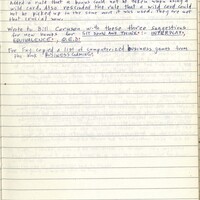 Added a rule that a bonus could not be taken when using a
wild card. Also rescinded the rule that a wild card could
not be picked up in the same unit it was used. They are not
that crucial now.
Wrote to Bill Caruson with these three suggestions
for new names for SIT DOWN AND THINK!: INTERPLAY,
EQUIVALENCE, Q.E.D.!
For fun, copied a list of computerized business games from
the book BUSINESS GAMES.